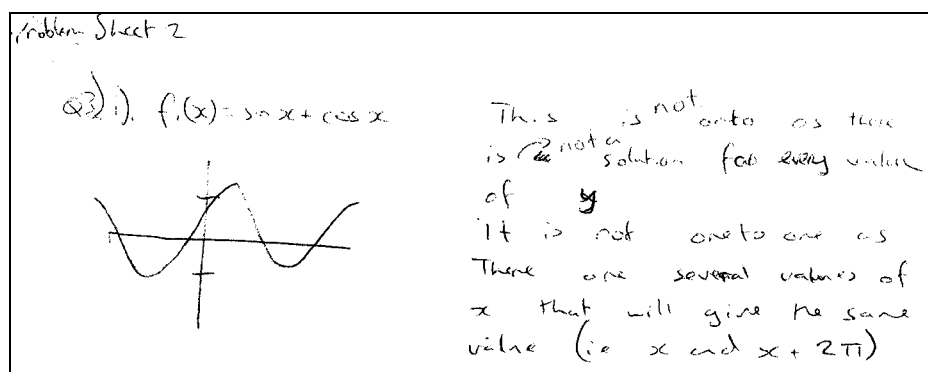 Problem Sheet 2
Q3) i). f₁(x) = sin x + cos x
This is not onto as there
is not a solution for every value
of y
it is not one to one as
There are several values of
x that will give the same
value (ie x and x + 2π)